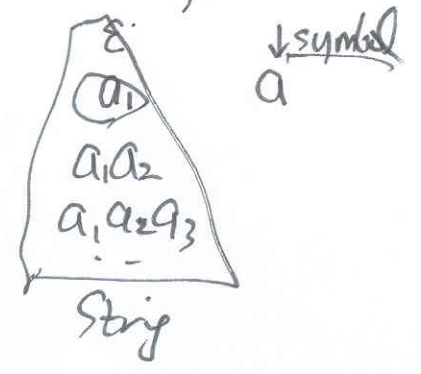 ε
a₁
a₁a₂
a₁a₂a₃
. –
String
↓symbol
a